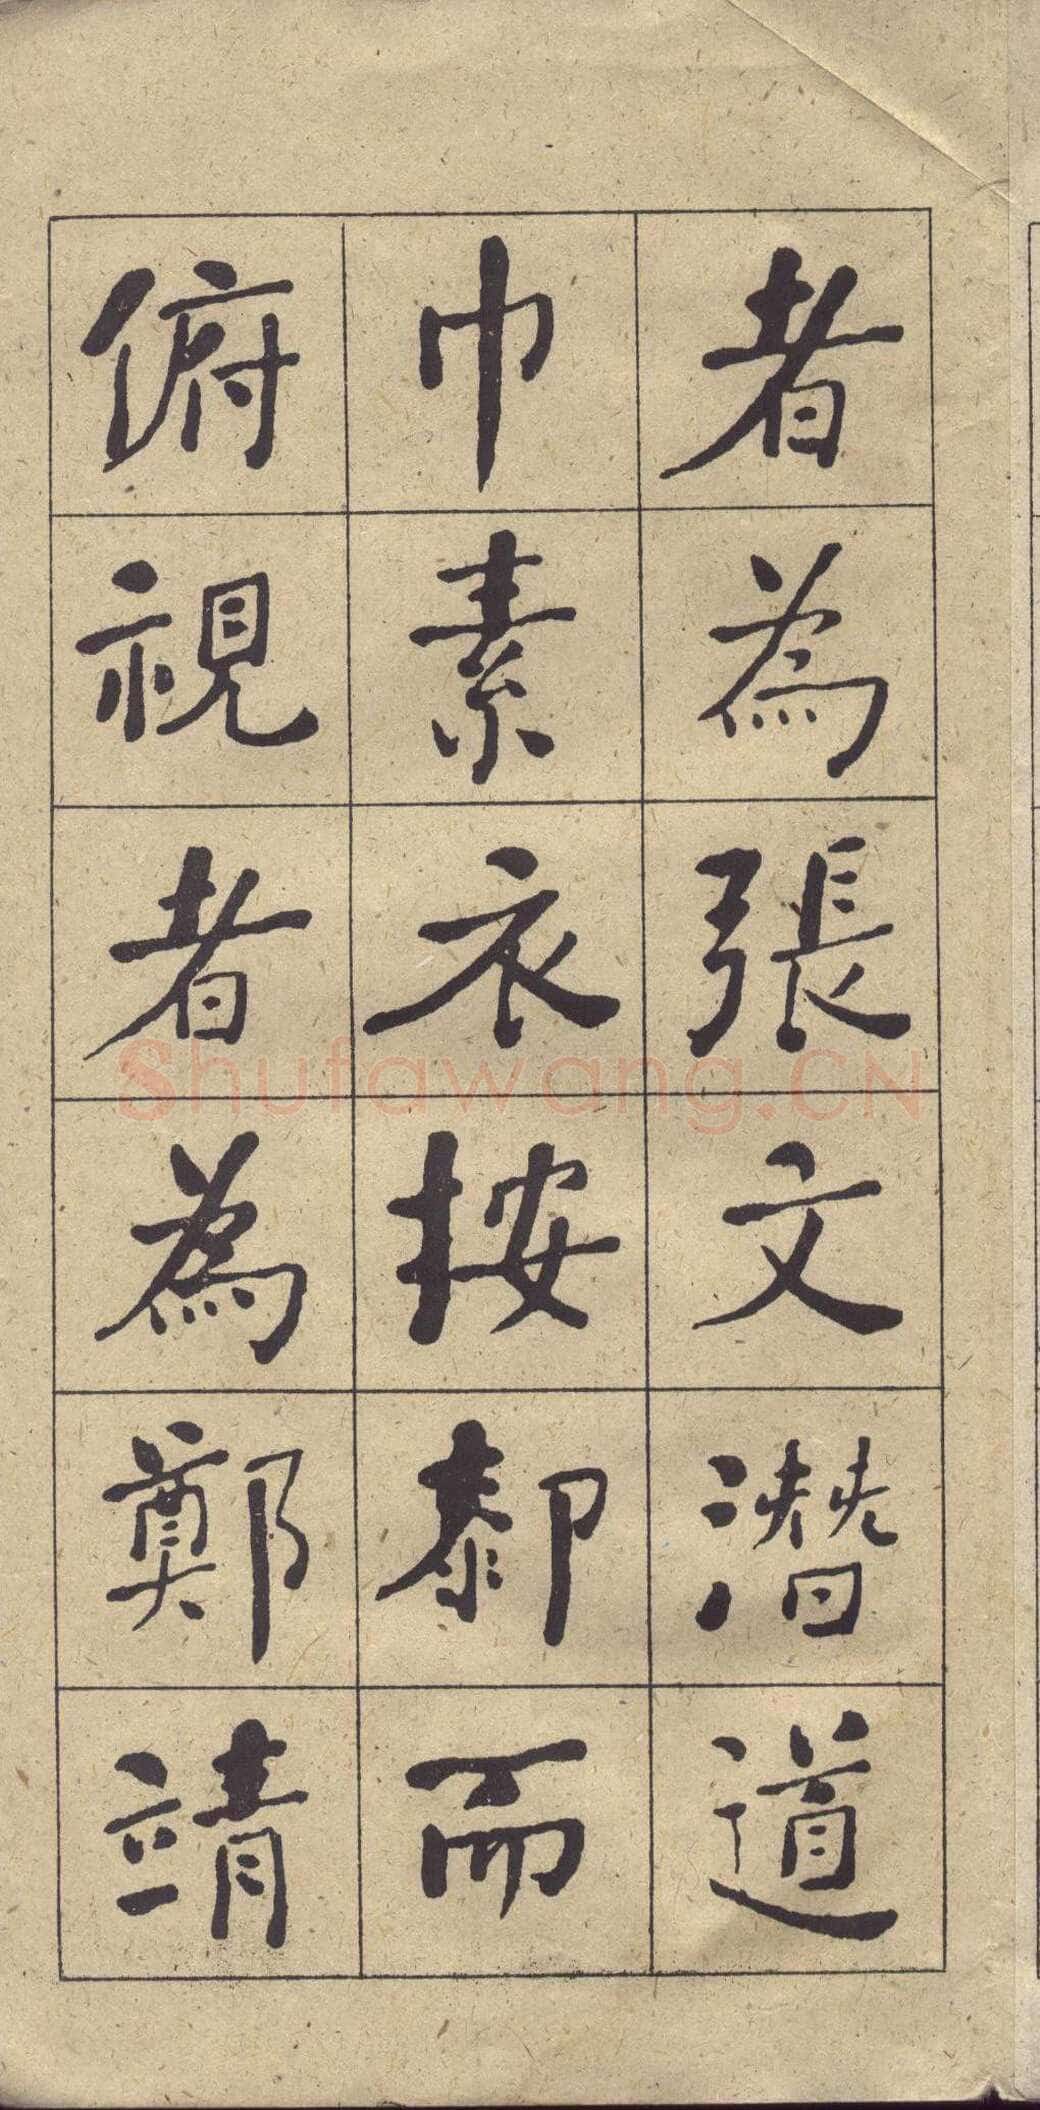 者為張文潛道
巾素衣按厀而
俯視者為鄭靖
Shufawang.CN